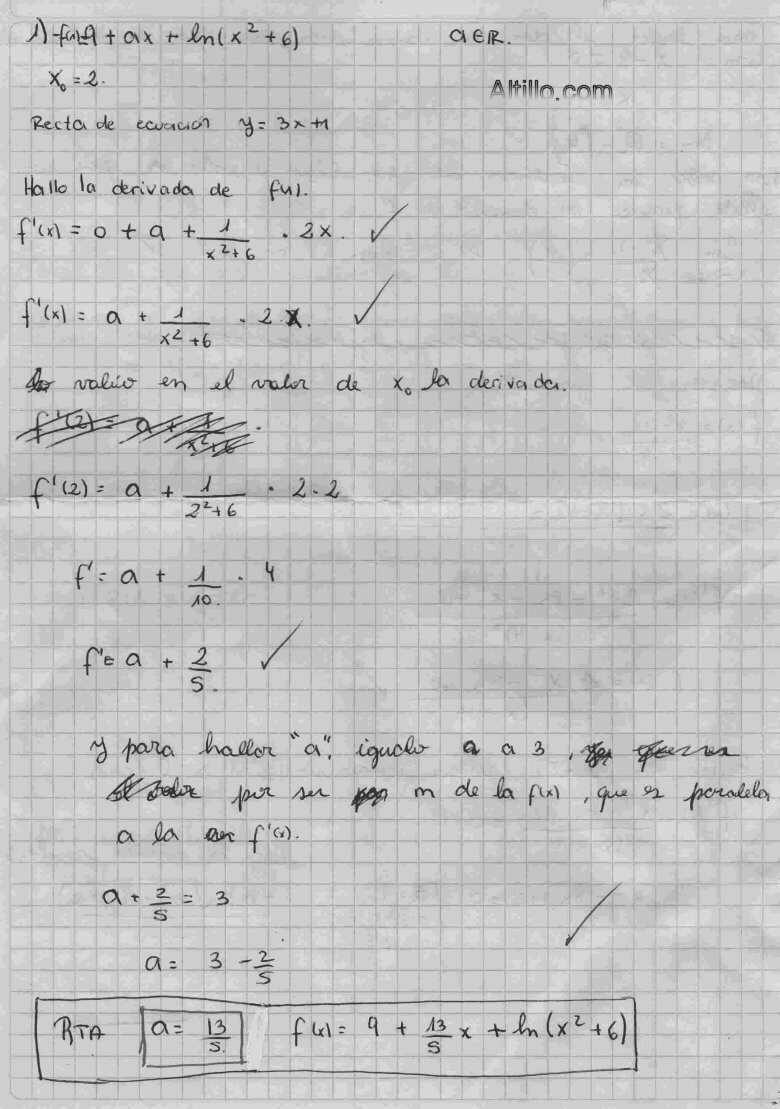 1) f(x)=9 + ax + ln(x² + 6) a ∈ ℝ.
x₀ = 2.
Altillo.com
Recta de ecuación y = 3x+1
Hallo la derivada de f(x).
f'(x) = 0 + a + 1/(x²+6) · 2x. ✓
f'(x) = a + 1/(x²+6) · 2x. ✓
valúo en el valor de x₀ la derivada.
f'(2) = a + 1/(2²+6) · 2·2
f' = a + 1/10 · 4
f' = a + 2/5. ✓
y para hallar "a", igualo a a 3,
por ser m de la f(x), que es paralela
a la f'(x).
a + 2/5 = 3
a = 3 - 2/5 ✓
RTA a = 13/5. f(x) = 9 + 13/5 x + ln(x²+6)